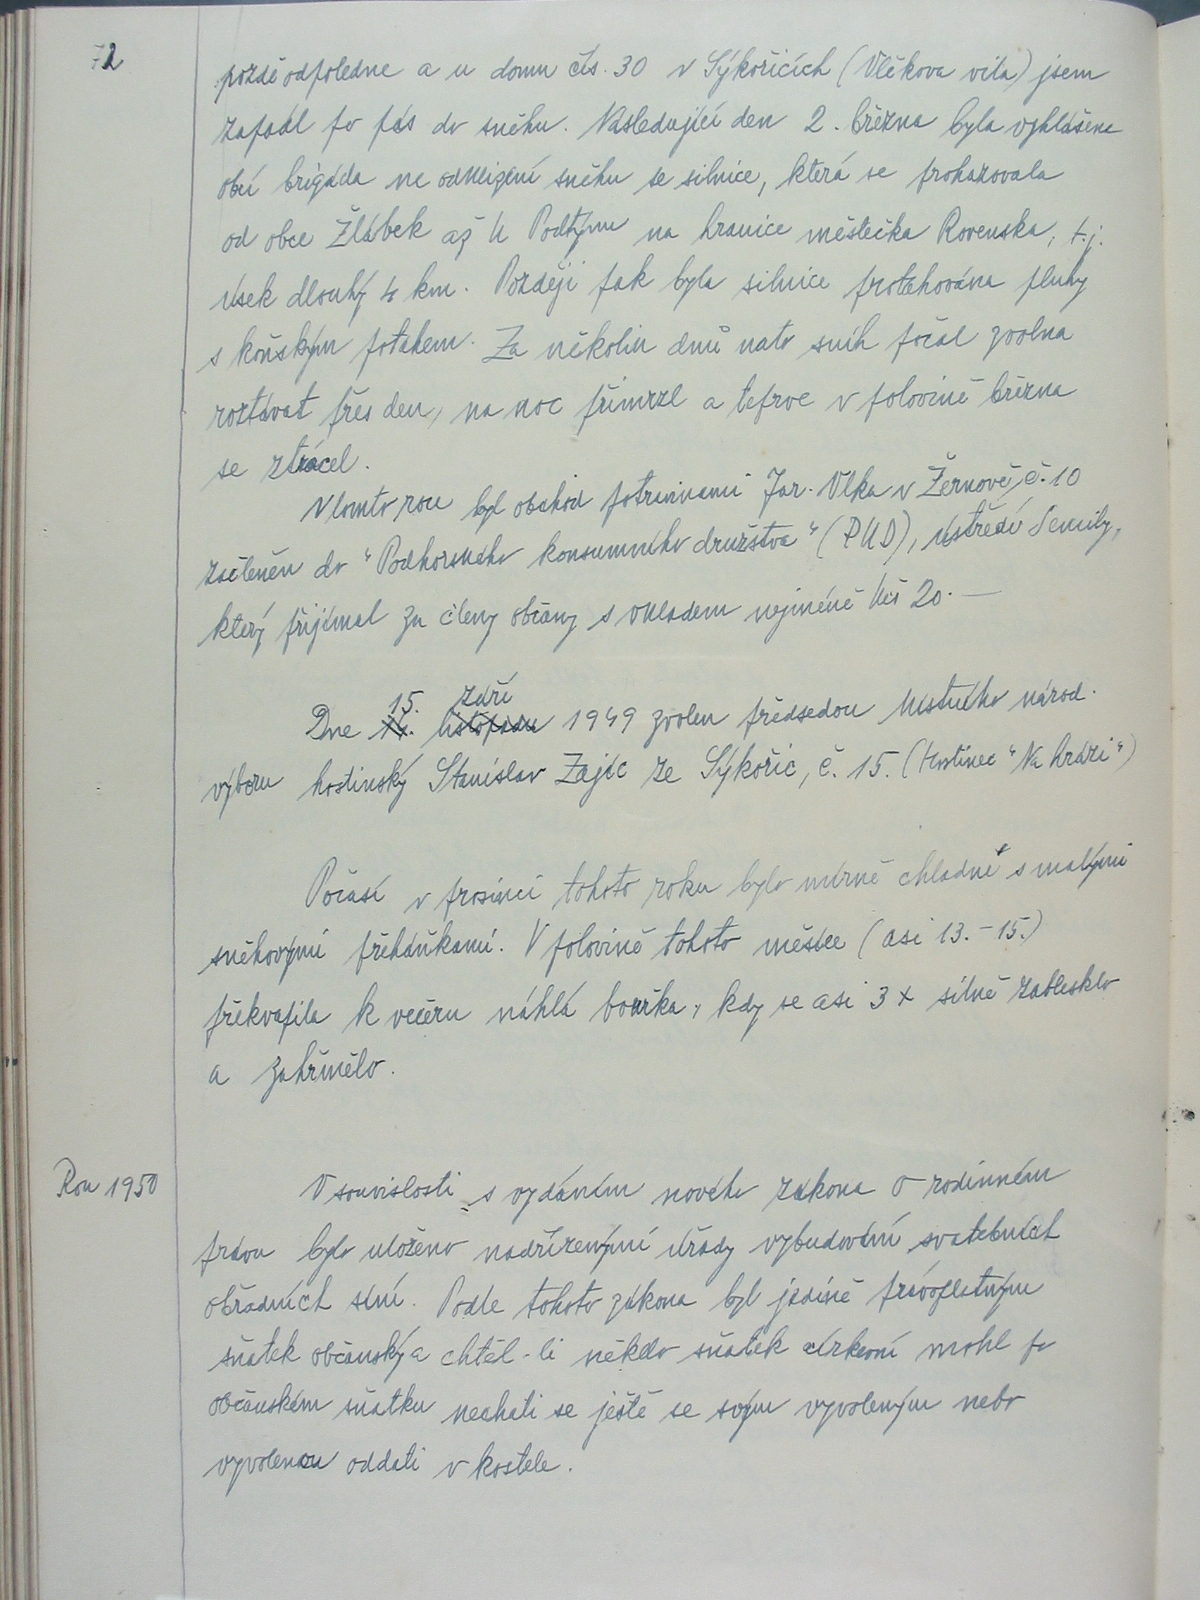 72
pozdě odpoledne a u domu čís. 30 v Sýkořicích (Vlčkova vila) jsem
zapadl po pás do sněhu. Následující den 2. března byla vyhlášena
obcí brigáda na odklizení sněhu se silnice, která se prohazovala
od obce Žlábek až k Podtýmu na hranice městečka Rovenska, t.j.
úsek dlouhý 4 km. Později pak byla silnice protahována pluhy
s koňským potahem. Za několik dnů nato sníh počal zvolna
roztávat přes den, na noc přimrzl a teprve v polovině března
se ztrácel.
V tomto roku byl obchod potravinami Jar. Vlka v Žernově, č. 10
začleněn do "Podhorského konsumního družstva" (PKD), ústředí Semily,
který přijímal za členy občany s vkladem nejméně Kčs 20.—
Dne 14. listopadu 15. září 1949 zvolen předsedou Místního národ.
výboru hostinský Stanislav Zajíc ze Sýkořic, č. 15. (Hostinec "Na hrázi")
Počasí v prosinci tohoto roku bylo mírně chladné s malými
sněhovými přeháňkami. V polovině tohoto měsíce (asi 13.–15.)
překvapila k večeru náhlá bouřka, kdy se asi 3 x silně zablesklo
a zahřmělo.
Rok 1950
V souvislosti s vydáním nového zákona o rodinném
právu bylo uloženo nadřízenými úřady vybudování svatebních
obřadních síní. Podle tohoto zákona byl jedině právoplatným
sňatek občanský a chtěl-li někdo sňatek církevní mohl po
občanském sňatku nechati se ještě se svým vyvoleným nebo
vyvolenou oddati v kostele.